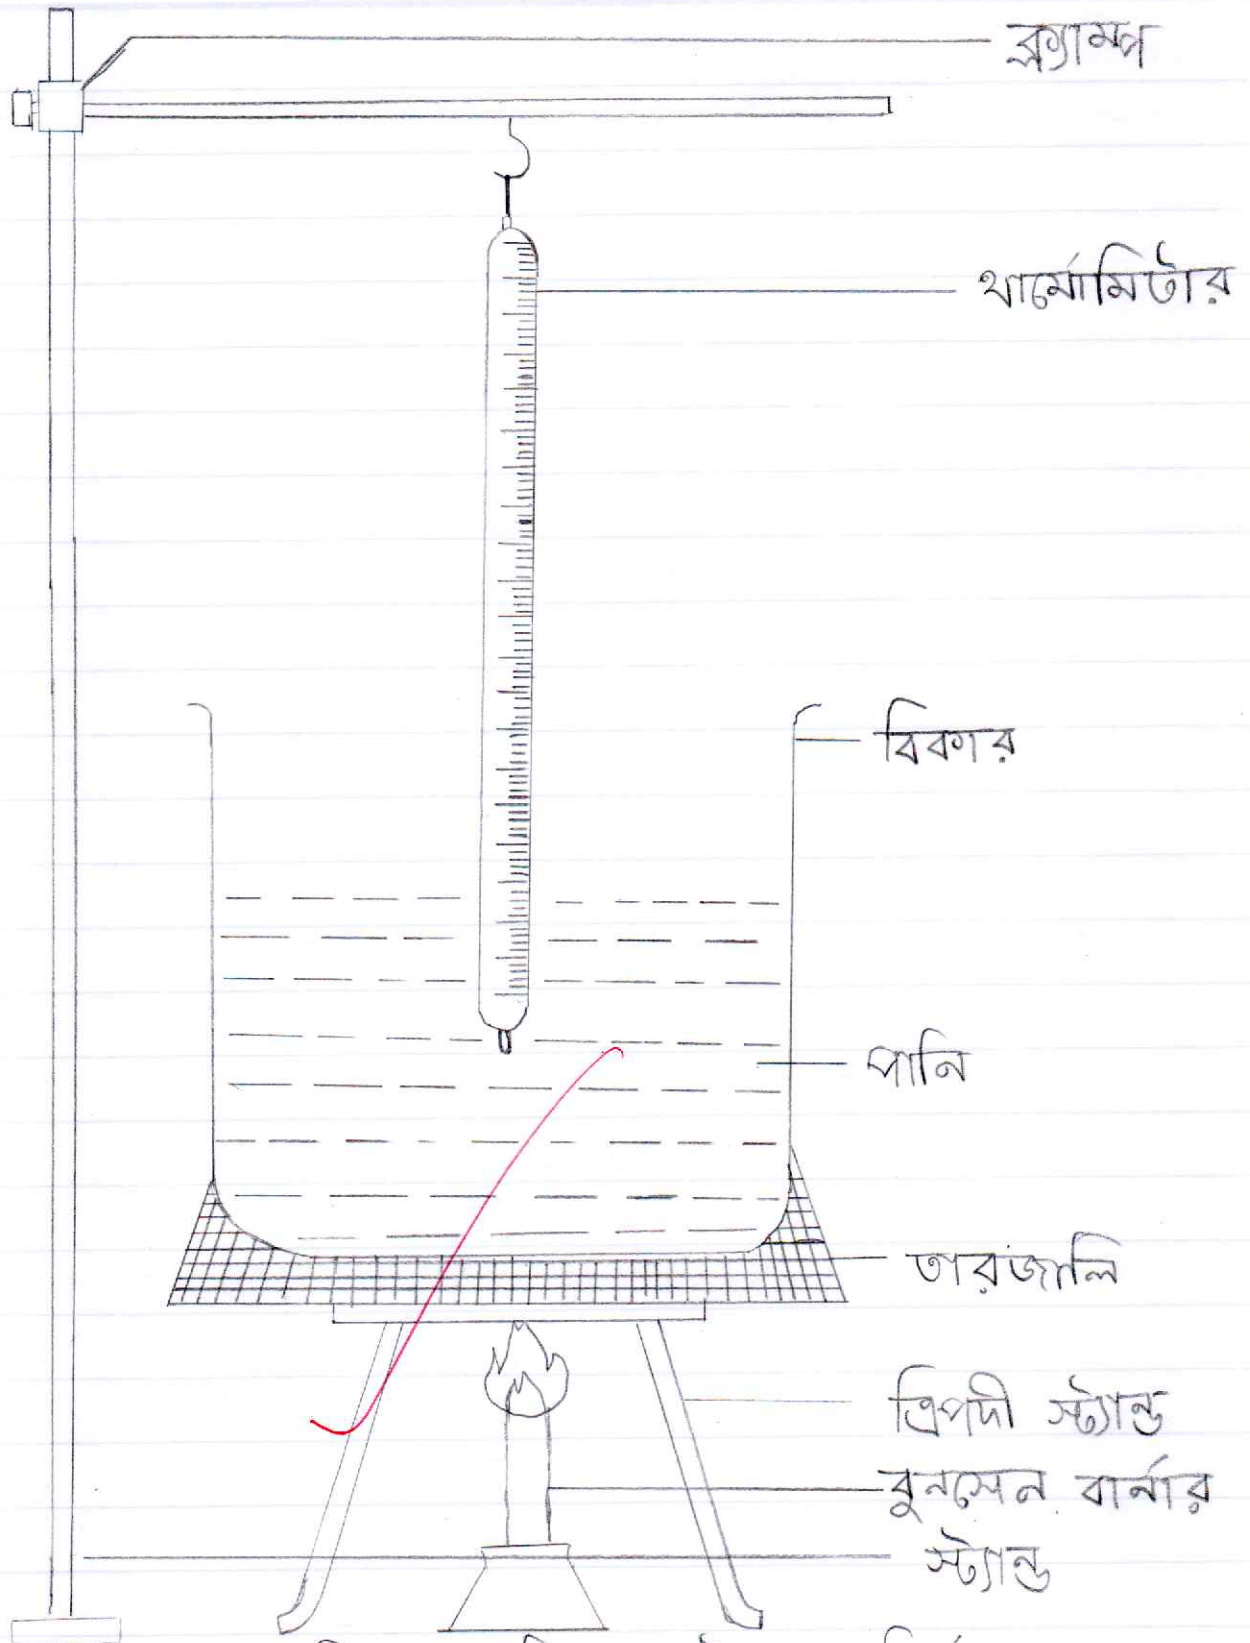 ক্ল্যাম্প
থার্মোমিটার
বিকার
পানি
তারজালি
ত্রিপদী স্ট্যান্ড
বুনসেন বার্নার
স্ট্যান্ড